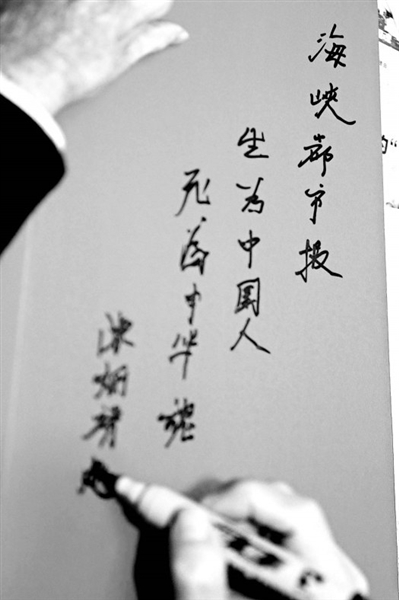 海峡都市报
生为中国人
死为中华魂
陈炳靖